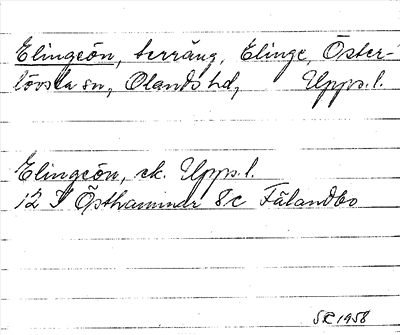 Elingeön, terräng, Elinge, Öster-
lövsta sn, Olands hd, Upps.l.
Elingeön, ek. Upps.l.
12 I Östhammar 8c Fälandbo
1958